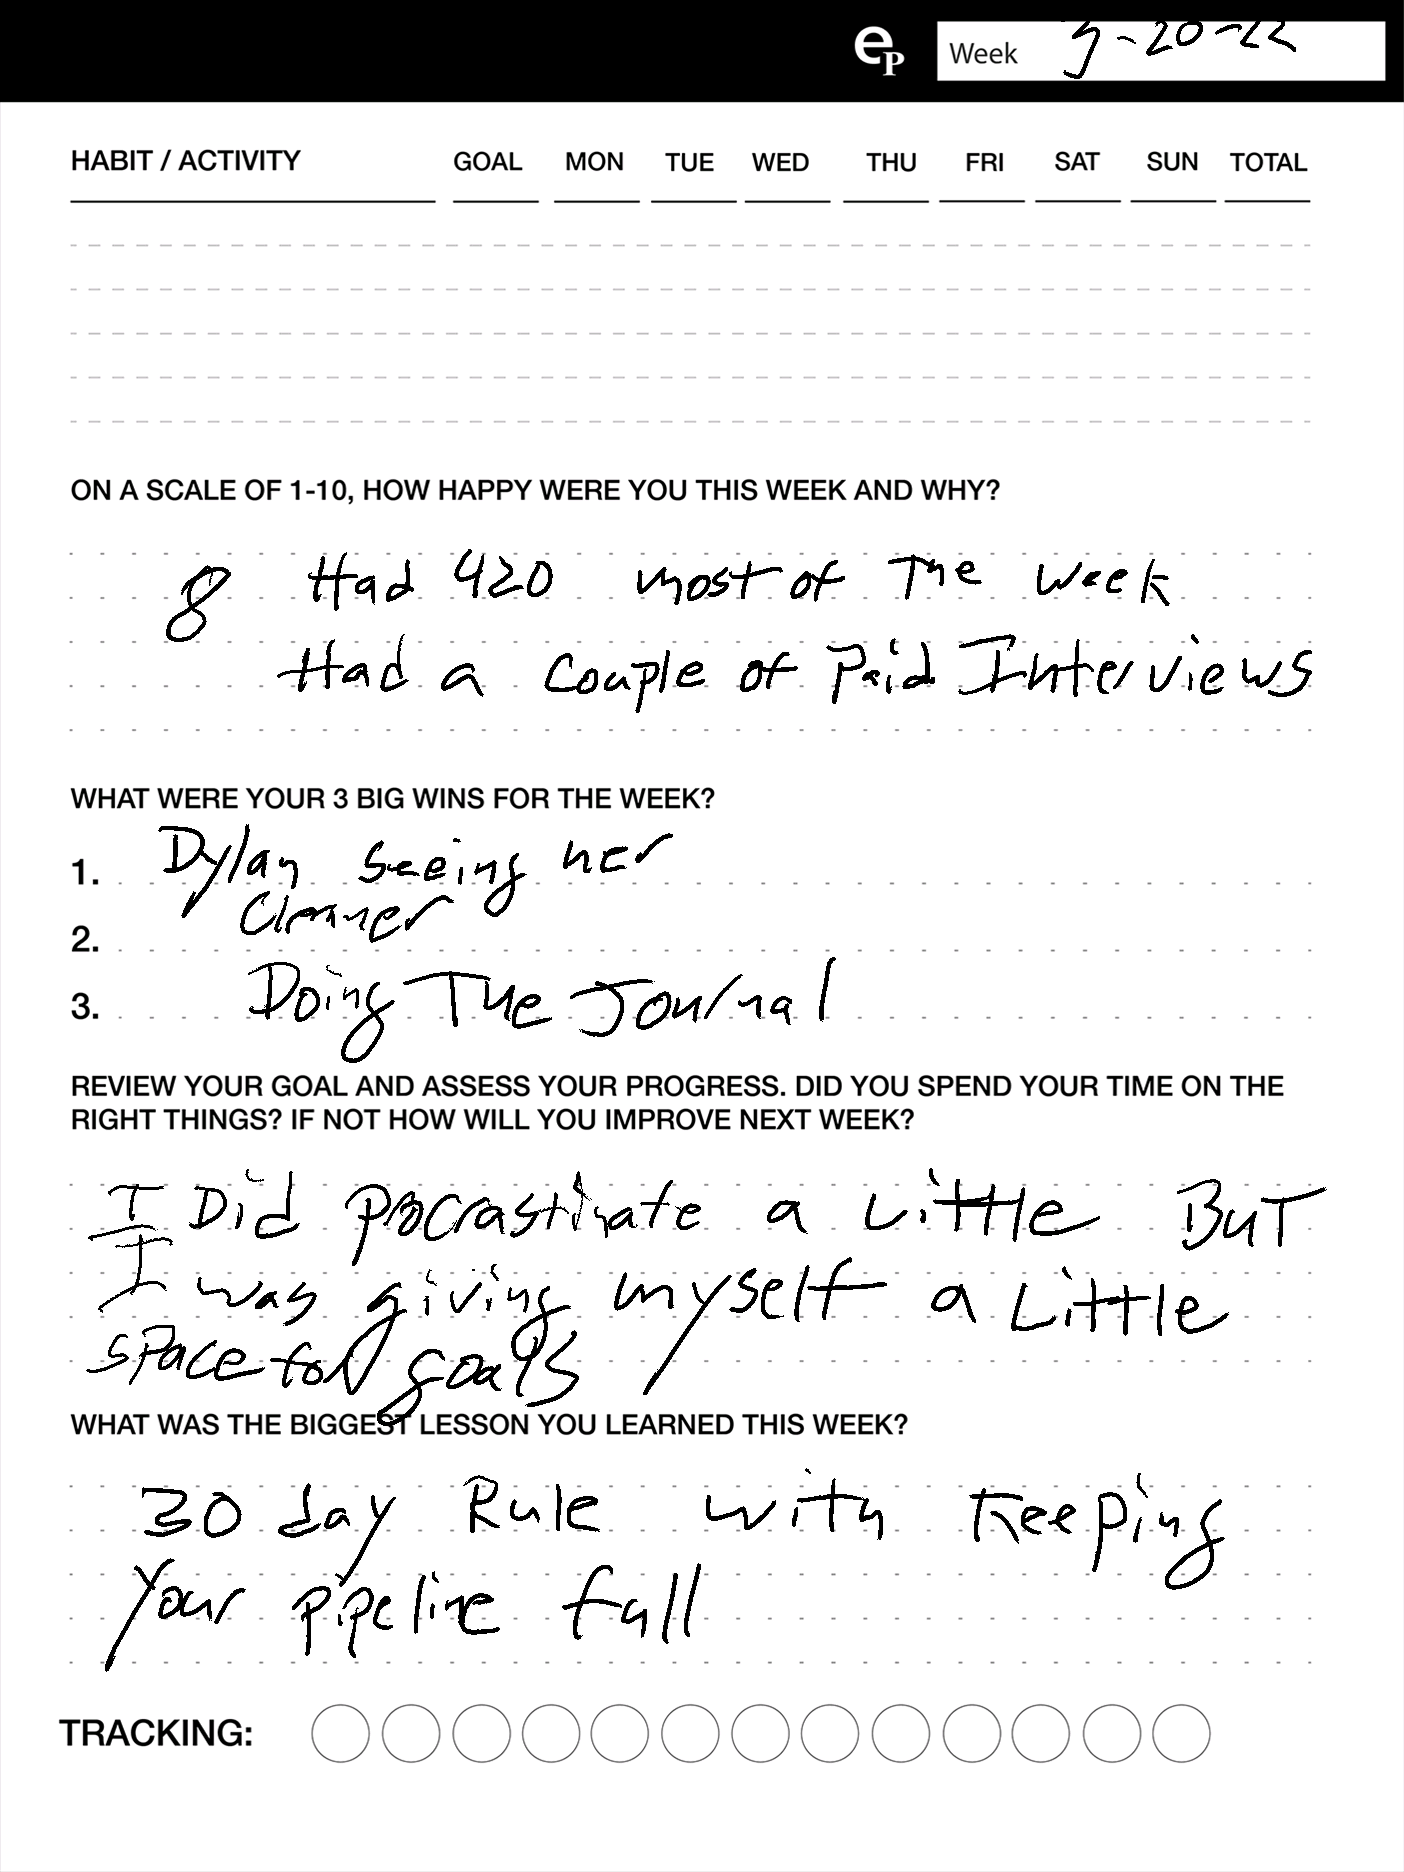 eP Week 3-20-22
HABIT / ACTIVITY GOAL MON TUE WED THU FRI SAT SUN TOTAL
ON A SCALE OF 1-10, HOW HAPPY WERE YOU THIS WEEK AND WHY?
8 Had 420 most of The week
Had a couple of Paid Interviews
WHAT WERE YOUR 3 BIG WINS FOR THE WEEK?
1. Dylan seeing her
Cleaner
2.
3. Doing The Journal
REVIEW YOUR GOAL AND ASSESS YOUR PROGRESS. DID YOU SPEND YOUR TIME ON THE
RIGHT THINGS? IF NOT HOW WILL YOU IMPROVE NEXT WEEK?
I Did procrastinate a Little BuT
I was giving myself a Little
space for goals
WHAT WAS THE BIGGEST LESSON YOU LEARNED THIS WEEK?
30 day Rule with Keeping
Your pipeline full
TRACKING: